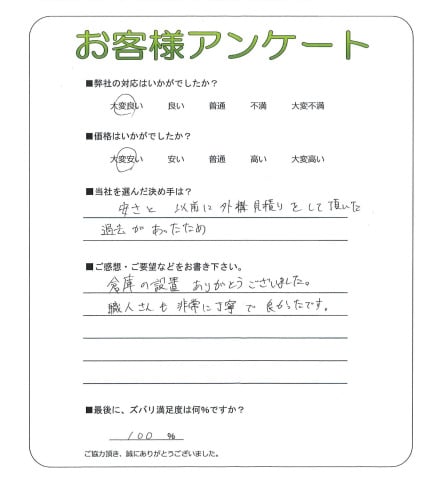 お客様アンケート
■弊社の対応はいかがでしたか?
大変良い 良い 普通 不満 大変不満
■価格はいかがでしたか?
大変安い 安い 普通 高い 大変高い
■当社を選んだ決め手は?
安さと 以前に外構見積りをして頂いた
過去があったため
■ご感想・ご要望などをお書き下さい。
倉庫の設置ありがとうございました。
職人さんも非常に丁寧で良かったです。
■最後に、ズバリ満足度は何%ですか?
100 %
ご協力頂き、誠にありがとうございました。